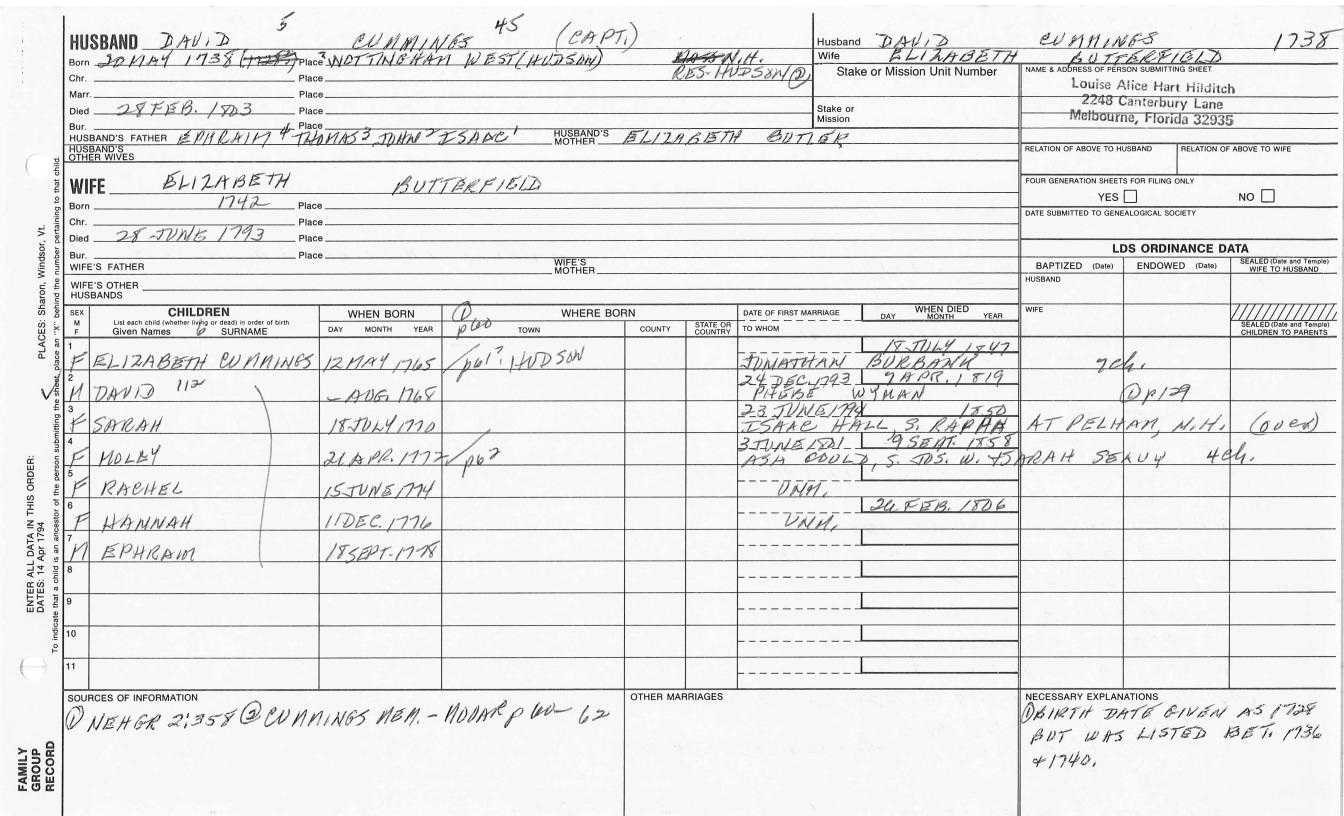 HUSBAND DAVID 5 CUMMINGS 45 (CAPT.)
Born 20 MAY 1738 Place NOTTINGHAM WEST (HUDSON) N.H.
Chr. Place RES-HUDSON ②
Marr. Place
Died 28 FEB. 1803 Place
Bur. Place
HUSBAND'S FATHER EPHRAIM 4 THOMAS 3 JOHN 2 ISAAC 1 HUSBAND'S MOTHER ELIZABETH BUTLER
HUSBAND'S OTHER WIVES
WIFE ELIZABETH BUTTERFIELD
Born 1742 Place
Chr. Place
Died 28 JUNE 1793 Place
Bur. Place
WIFE'S FATHER WIFE'S MOTHER
WIFE'S OTHER HUSBANDS
Husband DAVID CUMMINGS 1738
Wife ELIZABETH BUTTERFIELD
Stake or Mission Unit Number
Stake or Mission
NAME & ADDRESS OF PERSON SUBMITTING SHEET
Louise Alice Hart Hilditch
2248 Canterbury Lane
Melbourne, Florida 32935
RELATION OF ABOVE TO HUSBAND RELATION OF ABOVE TO WIFE
FOUR GENERATION SHEETS FOR FILING ONLY
YES NO
DATE SUBMITTED TO GENEALOGICAL SOCIETY
LDS ORDINANCE DATA
BAPTIZED (Date) ENDOWED (Date) SEALED (Date and Temple) WIFE TO HUSBAND
HUSBAND
WIFE
SEALED (Date and Temple) CHILDREN TO PARENTS
SEX M F CHILDREN WHEN BORN ① p60 WHERE BORN DATE OF FIRST MARRIAGE WHEN DIED
List each child (whether living or dead) in order of birth
Given Names 6 SURNAME DAY MONTH YEAR TOWN COUNTY STATE OR COUNTRY TO WHOM DAY MONTH YEAR
1 18 JULY 1847
F ELIZABETH CUMMINGS 12 MAY 1765 /p61? HUDSON JONATHAN BURBANK 7ch.
2 24 DEC. 1793 7 APR. 1819
✓ M DAVID 112 – AUG. 1768 PHEBE WYMAN ① p129
3 23 JUNE 1794 1850
F SARAH 18 JULY 1770 ISAAC HALL, S. RAPHA AT PELHAM, N.H. (over)
4 3 JUNE 1801 9 SEPT. 1858
F MOLEY 21 APR. 1772 /p62 ASA GOULD, S. JOS. W. + SARAH 4ch.
5
F RACHEL 15 JUNE 1774 UNM.
6 26 FEB. 1806
F HANNAH 11 DEC. 1776 UNM.
7
M EPHRAIM 18 SEPT. 1778
8
9
10
11
SOURCES OF INFORMATION
① NEHGR 2:358 ② CUMMINGS MEM. – MOOAR p 60–62
OTHER MARRIAGES
NECESSARY EXPLANATIONS
① BIRTH DATE GIVEN AS 1728
BUT WAS LISTED BET. 1736
+ 1740.
PLACES: Sharon, Windsor, Vt.
ENTER ALL DATA IN THIS ORDER:
DATES: 14 Apr 1794
To indicate that a child is an ancestor of the person submitting the sheet, place an "X" behind the number pertaining to that child.
FAMILY
GROUP
RECORD